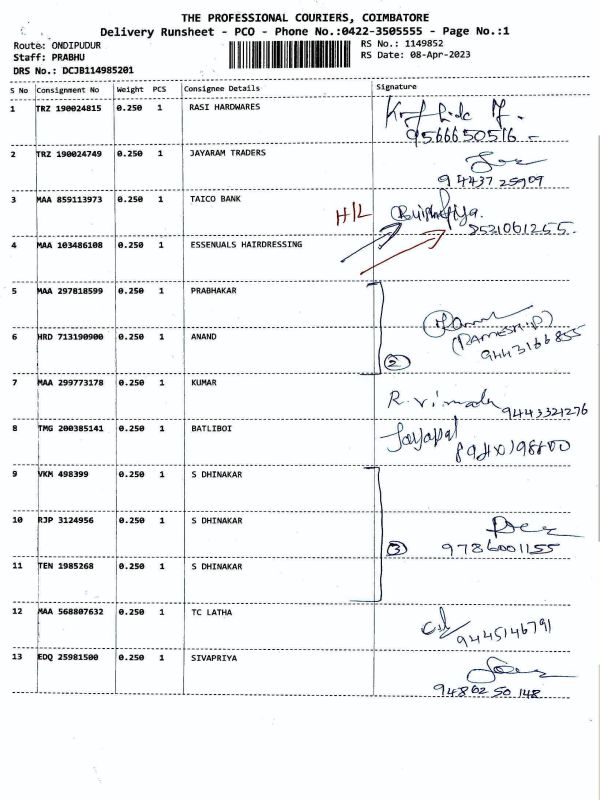 THE PROFESSIONAL COURIERS, COIMBATORE
Delivery Runsheet - PCO - Phone No.:0422-3505555 - Page No.:1
Route: ONDIPUDUR RS No.: 1149852
Staff: PRABHU RS Date: 08-Apr-2023
DRS No.: DCJB114985201
S No Consignment No Weight PCS Consignee Details Signature
1 TRZ 190024815 0.250 1 RASI HARDWARES
9566650516
2 TRZ 190024749 0.250 1 JAYARAM TRADERS
9443725909
3 MAA 859113973 0.250 1 TAICO BANK
H/L
8521061255
4 MAA 103486108 0.250 1 ESSENUALS HAIRDRESSING
5 MAA 297818599 0.250 1 PRABHAKAR
6 HRD 713190900 0.250 1 ANAND
(RAMESH.P)
9443166855
2
7 MAA 299773178 0.250 1 KUMAR
R. Vimala 9443321276
8 TMG 200385141 0.250 1 BATLIBOI
Jayapal
9 VKM 498399 0.250 1 S DHINAKAR
10 RJP 3124956 0.250 1 S DHINAKAR
3 9786001155
11 TEN 1985268 0.250 1 S DHINAKAR
12 MAA 568807632 0.250 1 TC LATHA
9445146791
13 EDQ 25981500 0.250 1 SIVAPRIYA
9486250148